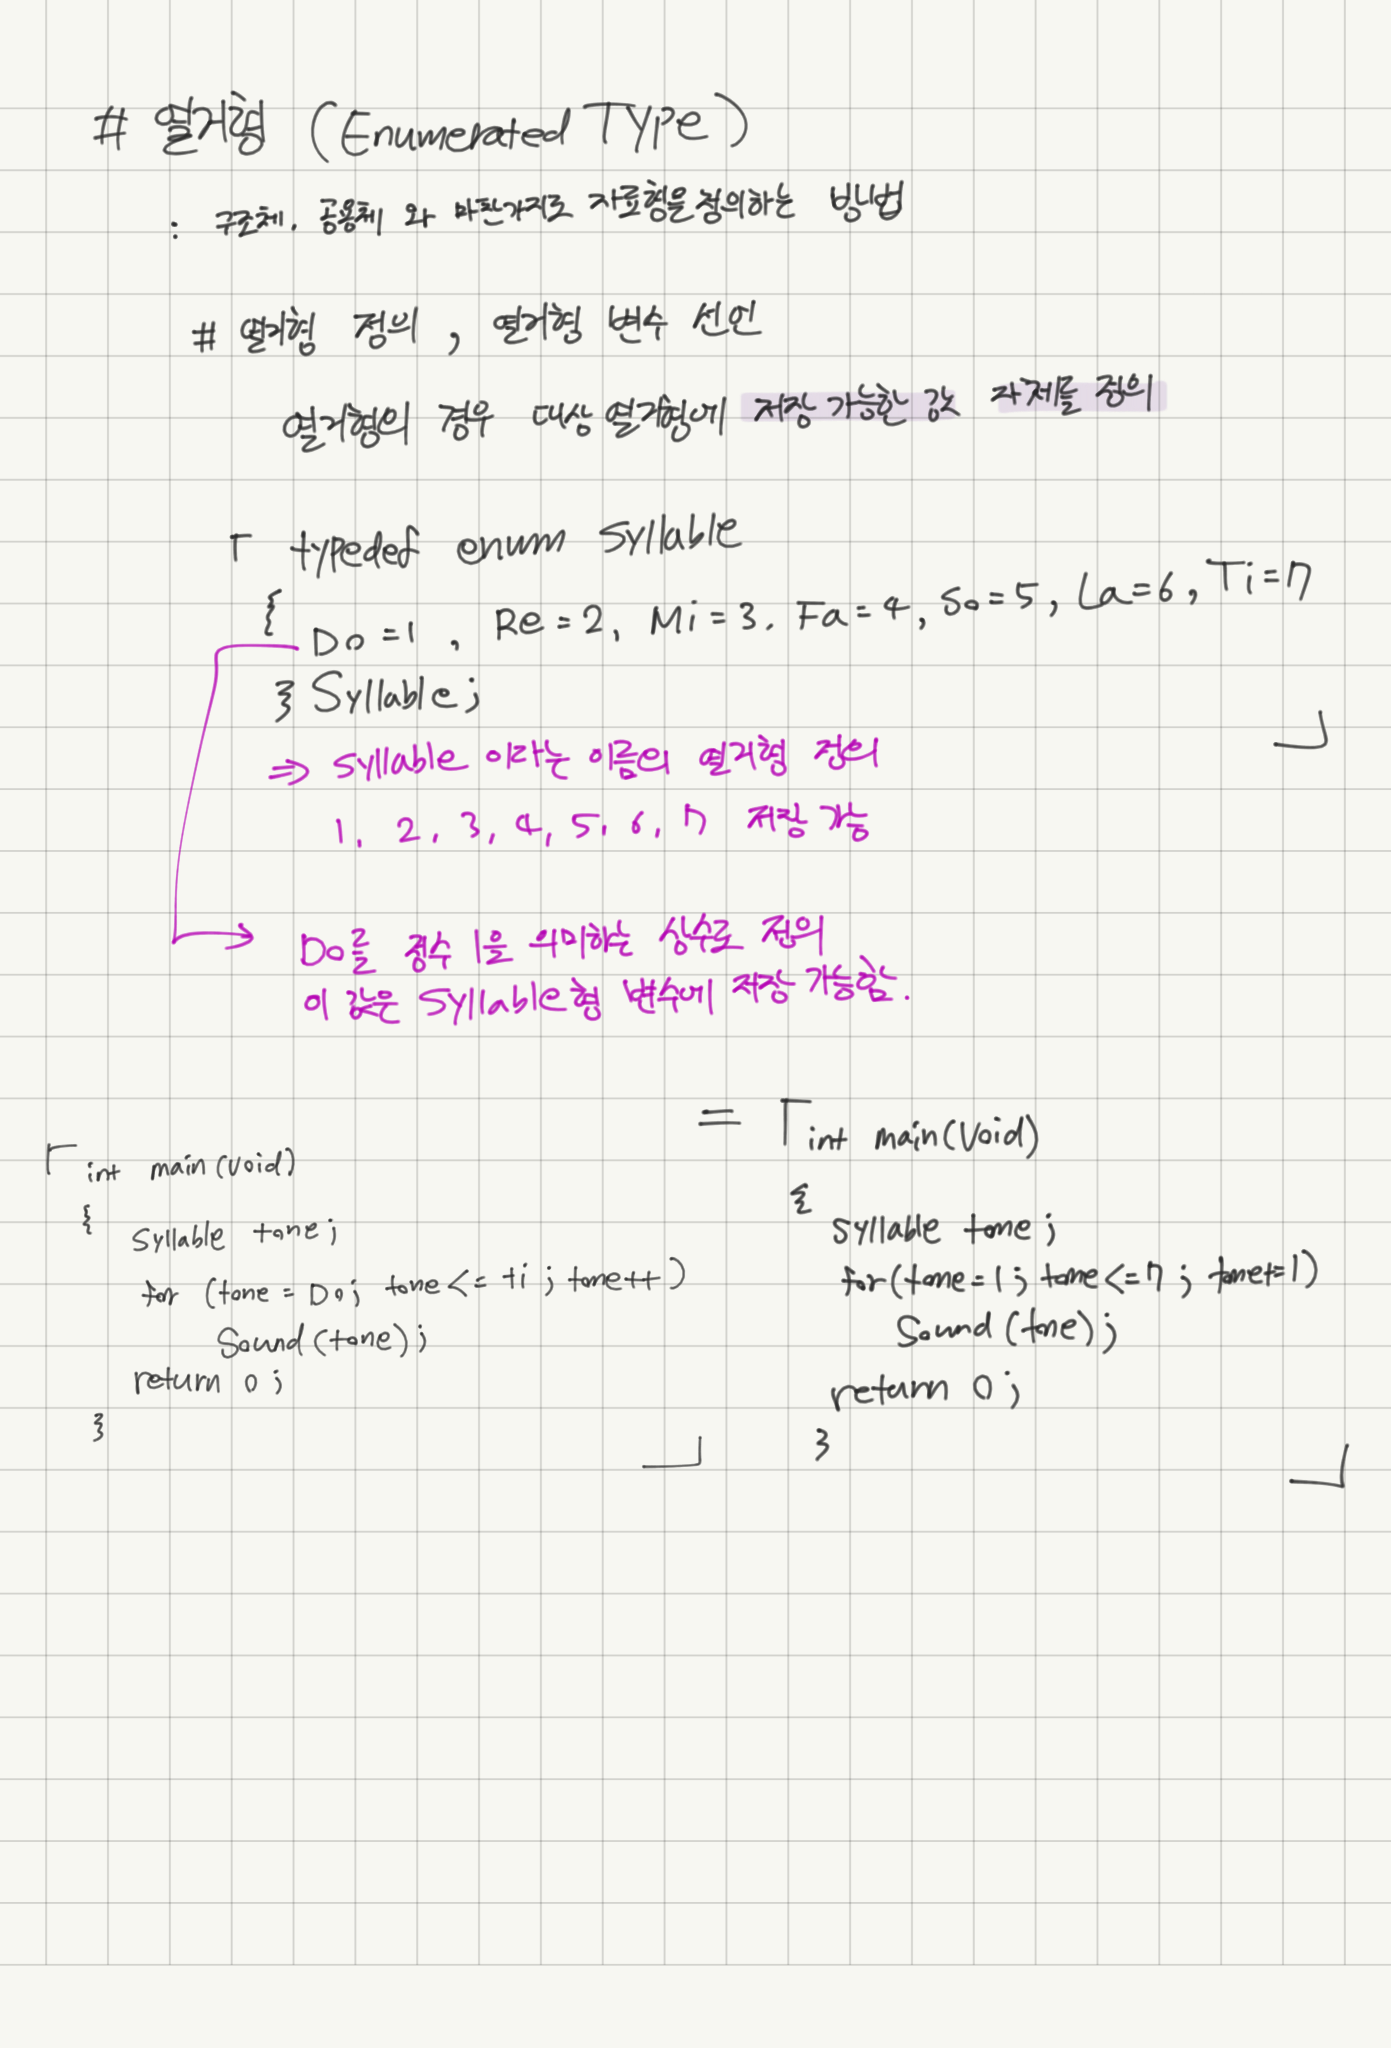 # 열거형 (Enumerated Type)
: 구조체, 공용체 와 마찬가지로 자료형을 정의하는 방법
# 열거형 정의, 열거형 변수 선언
열거형의 경우 대상 열거형에 저장 가능한 값 자체를 정의
「 typedef enum syllable
{
Do=1, Re=2, Mi=3, Fa=4, So=5, La=6, Ti=7
} Syllable; 」
⇒ syllable 이라는 이름의 열거형 정의
1, 2, 3, 4, 5, 6, 7 저장 가능
→ Do를 정수 1을 의미하는 상수로 정의
이 값은 syllable형 변수에 저장 가능함.
「 int main(void)
{
Syllable tone;
for (tone = Do; tone <= ti; tone++)
Sound(tone);
return 0;
} 」
= 「 int main(void)
{
syllable tone;
for(tone=1; tone<=7; tone+=1)
Sound(tone);
return 0;
} 」